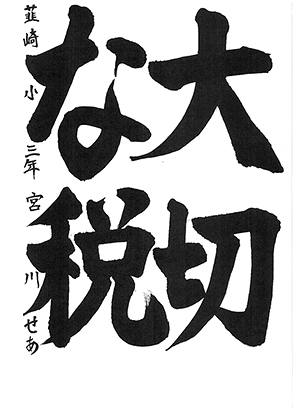 大切
な税
韮崎小三年宮川せあ